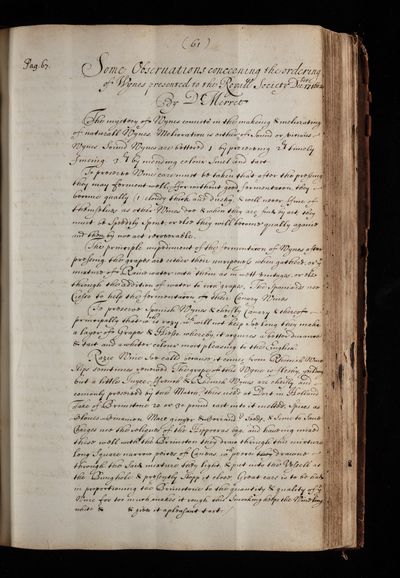 (61)
Pag. 67.
Some Observations concerning the ordering
of Wynes presented to the Royall Society
By Dr Merret
The mystery of Wynes consists in the making & meliorating
of naturall Wynes. Melioration is either of Sound or vitious
Wynes Sound Wynes are bettered 1 by preserving 2 timely
fineing 3 by mending colour Smel and tast
To preserve Wines care must be taken that after the pressing
they may ferment well, for without good fermentation they
become qually (i cloudy thick and dusky) & will never fine of
themselves as other Wines doe & when they are fined by art they
must be Speedily Spent, or else they will become qually againe
and then by noe art recoverable.
The principle impediment of the fermentation of Wynes after
pressing the grapes are either their unripenes when gathered or the
mixture of Raine water with them as in wett vintages or else
through the addition of water to rich grapes. The Spaniards use
to help the fermentation of their Canary Wines
To preserve Spanish Wynes & chiefly Canary & thereof
principally that is razy will not keep so long they make
a layer of Grapes & whereby it acquires a better
& tast and a whiter colour most pleasing to the English
Razie Wine Soe call'd because it comes from Rhenish Wine
Slips sometimes renewed The grape of this Wyne is fleshy yeilding
but a little Juyce. French & Rhenish Wynes are chiefly and
comonly preserved by the Match thus used at Dort in Holland
Take of Brimstone 20 or 30 pound cast into it melted Spices as
Cloves Cinamon Mace ginger & Coriander Seeds, & Some to Save
Charges use the reliques of the Hippocras bag, and haveing mixed
these well with the Brimston they draw through this mixture
long Square narrow peices of Canvas, wch peeces drawne
through the said mixture they light, & put into the Vessell at
the Bunghole & presently Stopp it close, Great care is to be had
in proportioning the Brimstone to the quantity & quality of ye
Wine for too much makes it rough this Smoaking helps the Wine long
white & & gives it a pleasant tast